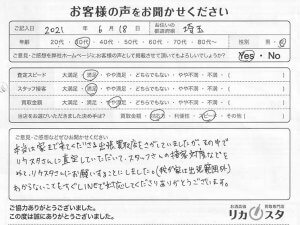 お客様の声をお聞かせください
ご記入日 2021年 6月 18日 お住いの都道府県 埼玉
年齢 20代・30代・40代・50代・60代・70代・80代 性別 男・女
ご意見・ご感想を弊社ホームページにお客様の声として掲載させて頂いてもよろしいでしょうか? Yes・No
査定スピード 大満足・満足・やや満足・どちらでもない・やや不満・不満・( )
スタッフ接客 大満足・満足・やや満足・どちらでもない・やや不満・不満・( )
買取金額 大満足・満足・やや満足・どちらでもない・やや不満・不満・( )
当店をお選びいただきました決め手は? 買取金額・対応・利便性・スピード・その他( )
ご意見・ご感想などぜひお聞かせください
本当は家まで来てくださる出張買取店をさがしていましたが、その中で
リカスタさんに査定していただいて、スタッフさんの接客対応などを
みてリカスタさんにお願いしました。(我が家は出張範囲外)
わからないこともすぐLINEで対応してくださりありがとうございます。
ご協力ありがとうございました。
この度は誠にありがとうございました。
お酒高価買取専門店
リカスタ